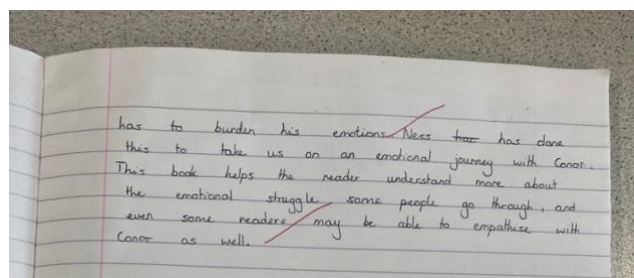 has to burden his emotions. Ness has done
this to take us on an emotional journey with Conor.
This book helps the reader understand more about
the emotional struggle some people go through, and
even some readers may be able to empathise with
Conor as well.